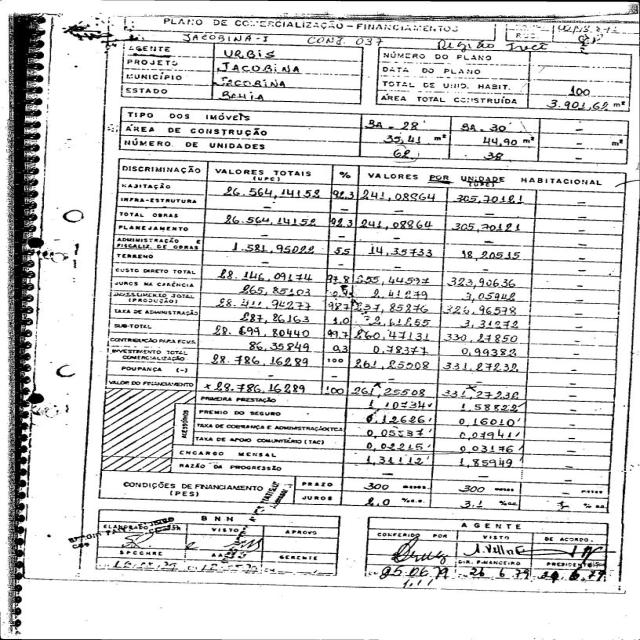 PLANO DE COMERCIALIZAÇÃO - FINANCIAMENTOS
JACOBINA-I CONJ. 037
AGENTE URBIS
PROJETO JACOBINA
MUNICÍPIO JACOBINA
ESTADO BAHIA
NÚMERO DO PLANO
DATA DO PLANO
TOTAL DE UNID. HABIT. 100
ÁREA TOTAL CONSTRUÍDA 3.901,62 m²
TIPO DOS IMÓVEIS BA-28 BA-30 —
ÁREA DE CONSTRUÇÃO 35,41 m² 44,90 m² — m²
NÚMERO DE UNIDADES 62 38 —
DISCRIMINAÇÃO VALORES TOTAIS (UPC) % VALORES POR UNIDADE HABITACIONAL (UPC)
HABITAÇÃO 26.564,14152 92,3 241,08864 305,70121 —
INFRA-ESTRUTURA — — — — —
TOTAL OBRAS 26.564,14152 92,3 241,08864 305,70121 —
PLANEJAMENTO — — — — —
ADMINISTRAÇÃO E FISCALIZ. DE OBRAS 1.581,95022 5,5 14,35733 18,20515 —
TERRENO — — — — —
CUSTO DIRETO TOTAL 28.146,09174 97,8 255,44597 323,90636 —
JUROS NA CARÊNCIA 265,85103 2,41279 3,05942 —
INVESTIMENTO TOTAL (PRODUÇÃO) 28.411,94277 98,7 257,85276 326,96578 —
TAXA DE ADMINISTRAÇÃO 287,86163 1,0 2,61255 3,31272 —
SUB-TOTAL 28.699,80440 99,7 260,47131 330,27850 —
CONTRIBUIÇÃO PARA FCVS 86,35849 0,3 0,78377 0,99382 —
INVESTIMENTO TOTAL COMERCIALIZAÇÃO 28.786,16289 100 261,25508 331,27232 —
POUPANÇA (-) — — — — —
VALOR DO FINANCIAMENTO 28.786,16289 100 261,25508 331,27232 —
PRIMEIRA PRESTAÇÃO 1,10734 1,58822 —
ACESSÓRIOS
PREMIO DO SEGURO 0,12626 0,16010 —
TAXA DE COBRANÇA E ADMINISTRAÇÃO(TCA) 0,05537 0,07941 —
TAXA DE APOIO COMUNITÁRIO (TAC) 0,02215 0,03176 —
ENCARGO MENSAL 1,31112 1,85949 —
RAZÃO DA PROGRESSÃO — — —
CONDIÇÕES DE FINANCIAMENTO (PES) PRAZO 300 meses 300 meses — meses
JUROS 2,0 % a.a. 3,1 % a.a. % a.a.
BNH
ELABORADO VISTO APROVO
GERENTE
AGENTE
CONFERIDO POR VISTO DE ACORDO.
DIR. FINANCEIRO PRESIDENTE
25.06.79 26.6.79